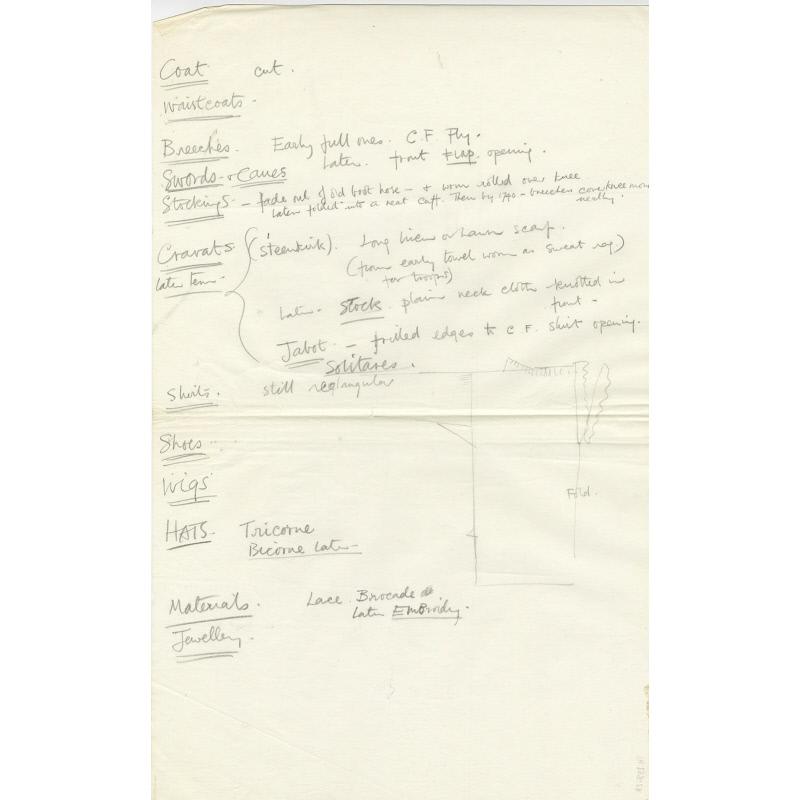 Coat cut.
Waistcoats -
Breeches. Early full ones. C.F. Fly.
Later. front FLAP opening.
Swords & Canes
Stockings - fade out of old boot hose - & worn rolled over knee
Later folded into a neat cuff. Then by 1740 - breeches cover knee more
neatly.
Cravats (Steenkirk). Long linen or Lawn scarf.
(from early towel worn as sweat rag)
for troops)
later Term -
Later - Stock. plain neck cloth knotted in
front -
Jabot - frilled edges to C F. shirt opening.
Solitares.
Shirts. still rectangular
Shoes
Wigs
Fold.
HATS. Tricorne
Bicorne Later
Materials. Lace Brocade
Later Embroidery.
Jewellery.